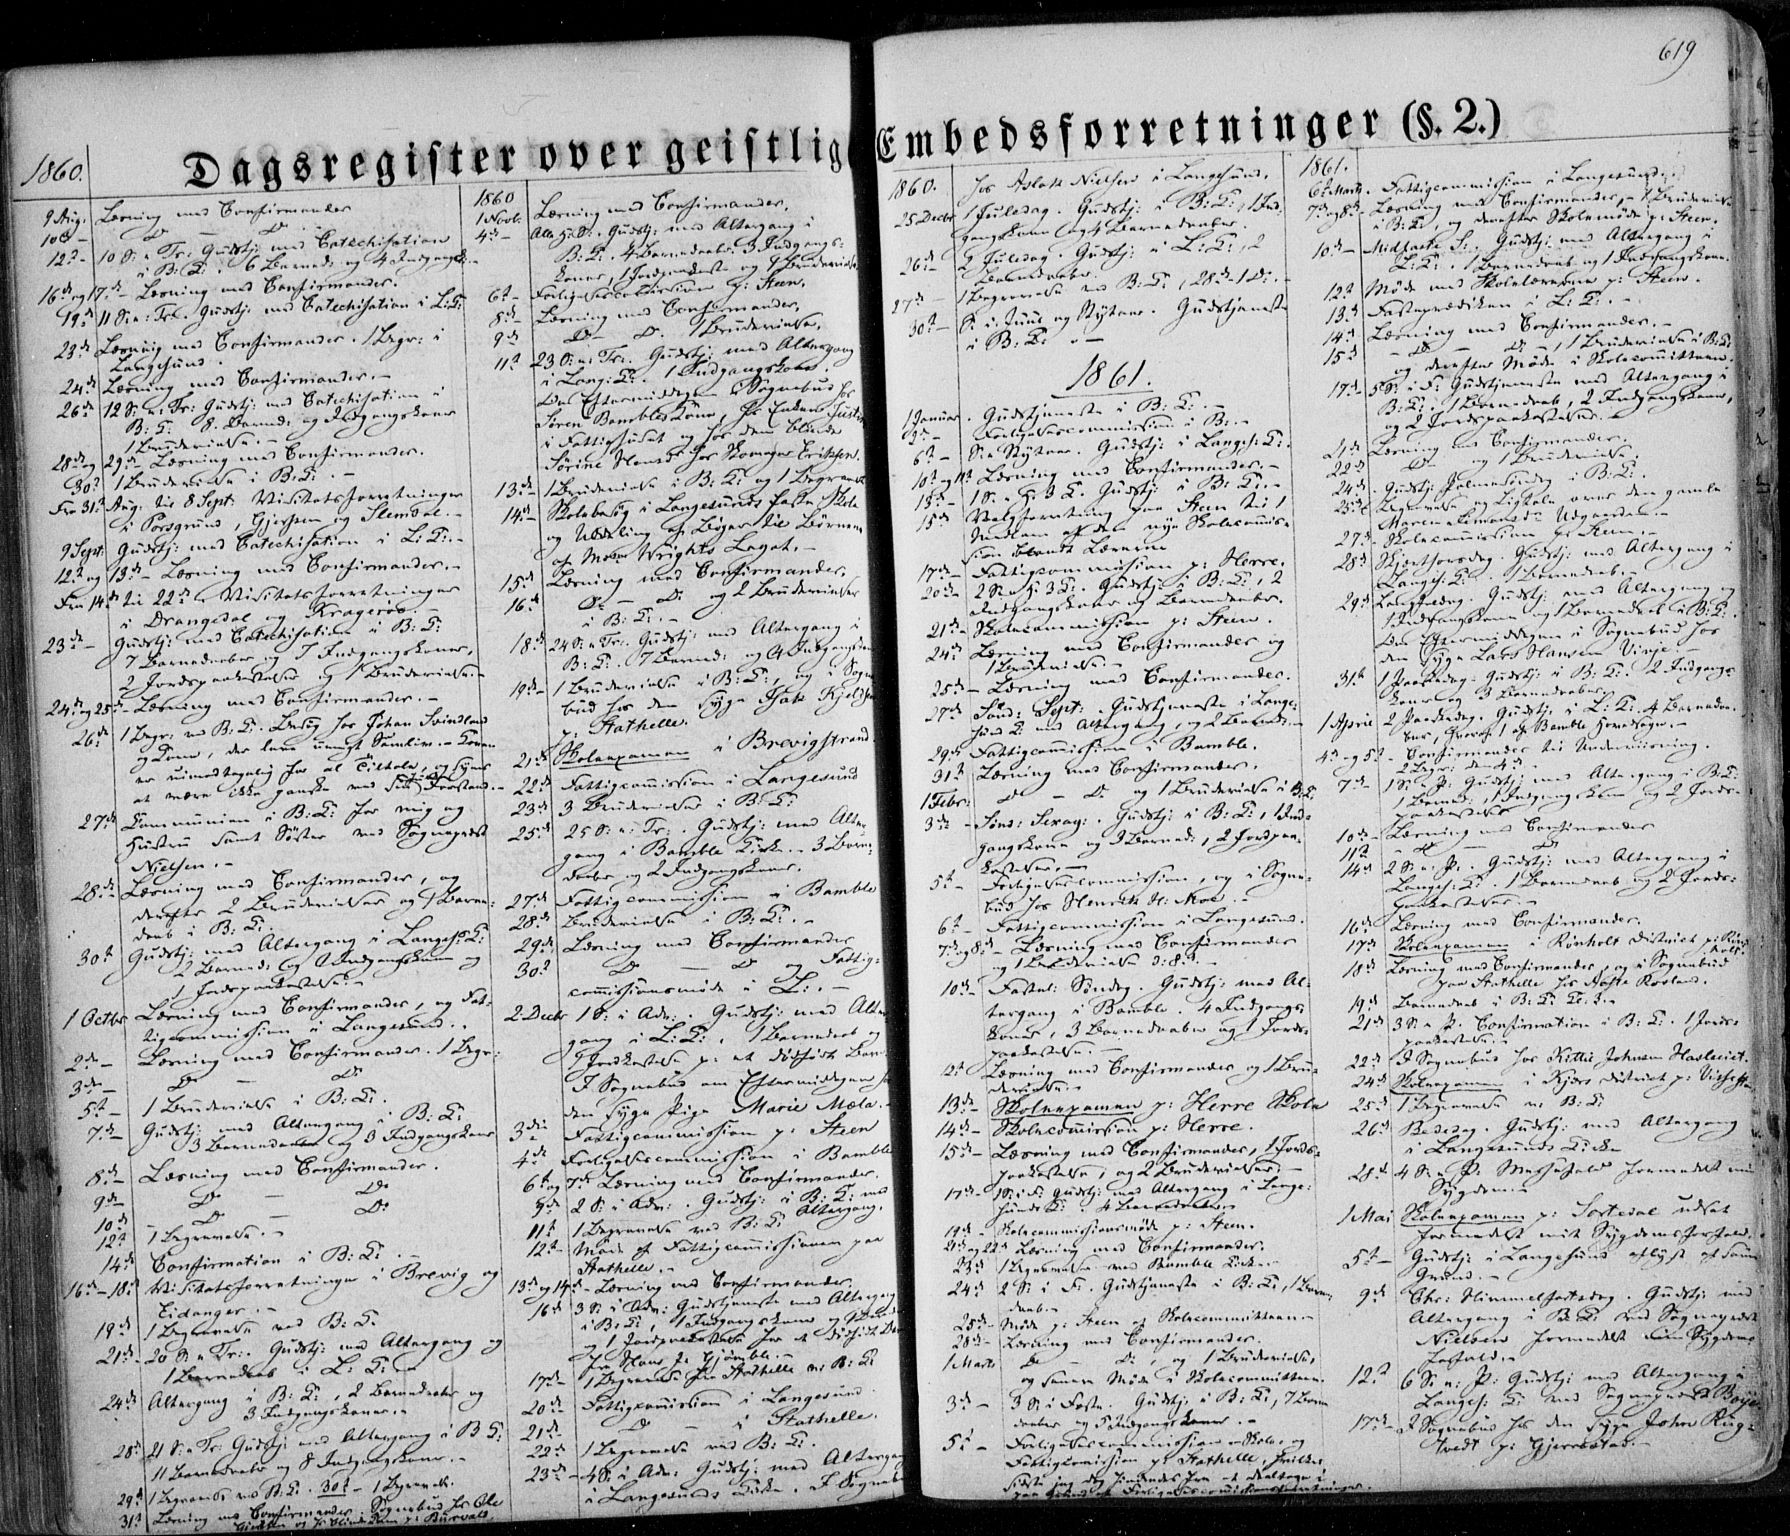 619
Dagsregister over geistlig Embedsforretninger (§. 2.)
1860.
9 Aug: Læsning med Confirmander
10de — Do — Do
12te — 10 S: e: Tr: Gudstj: med Catechisation
i B: K: . 6 Barned: og 4 Indgangsk:
16de og 17de — Læsning med Confirmander.
19de 11 S: e: Tr: Gudstj: med Catechisation i L: K:
23de Læsning med Confirmander. 1 Begr: i
Langesund.
24de Læsning med Confirmander. —
26de 12 S: e: Tr: Gudstj: med Catechisation i
B: K: 8 Barned: og Indgangskoner
1 Brudevielse. —
28de og 29de — Læsning med Confirmander.
30te 1 Brudevielse i B: K: . —
Fra 31te Aug: til 8 Sept: Visitatsforretninger
i Porsgrund, Gjerpen og Slemdal. —
9 Sept: Gudstj: med Catechisation i L: K: —
12te og 13de — Læsning med Confirmander. —
Fra 14de til 22de — Visitatsforretninger
i Drangedal og Kragerøe. —
23de — Gudstj: med Catechisation i B: K:
7 Barnedaaber og 7 Indgangskoner,
2 Jordspaakastelser og 1 Brudevielse. —
24de og 25de — Læsning med Confirmander. —
26de 1 Begr: ved B: K: . Besøg hos Johan Svindland
og Kone, der leve uenigt Samliv. — Konen
er uimodtagelig for al Tiltale, og synes
at være ikke ganske ved sin Forstand. —
27de Communion i B: K: for mig og
Hustru samt Søster ved Sognepræst
Nielsen. —
28de Læsning med Confirmander, og
derefter 2 Brudevielser og 1 Barne-
daab i B: K:
30te Gudstj: med Altergang i Langes: K:
2 Barned: og Indgangskone og
1 Jordspaakastelse. —
1 Octbr Læsning med Confirmander, og Fat-
tigcommission i Langesund. .
2de — Læsning med Confirmander. 1 Begr:
3de — Do — Do
5te — 1 Brudevielse i B: K: .
7de — Gudstj: med Altergang i B: K:
3 Barnedaaber og 3 Indgangskoner
8de — Læsning med Confirmander.
9de — Do — Do
10de — Do — Do
12te 1 Begravelse. —
14de Confirmation i B: K: . —
16de — 18de Visitatsforretninger i Brevig og
Eidanger. —
19de 1 Begravelse ved B: K:
21de — 20 S: e: Tr: . Gudstj: med Altergang og
1 Barnedaab i L: K: —
24de Altergang i B: K: , 2 Barnedaaber og
3 Indgangskoner. —
28de 21 S: e: Tr: Gudstj: med Altergang i B: K:
11 Barnedaaber og 8 Indgangskoner. —
29de 1 Begravelse ved B: K: . 30te — 1 Begravelse.
31te Læsning med Confirmander. Sognebud hos Ole
1860
1 Novb: Læsning med Confirmander,
4de — Alle Hs: S: . Gudstj: med Altergang i
B: K: . 4 Barnedaaber. 3 Indgangs-
koner, 1 Jordpaakast: og 1 Brudevielse
6te — Forligelsescommission p: Steen.
8de — Læsning med Confirmander,
9de — Do — Do. 1 Brudevielse,
11te 23 S: e: Tr: . Gudstj: med Altergang
i Lang: K: . 1 Indgangskone.
Om Eftermiddagen i Sognebud hos
Søren Bambles Kone, hos Enken
i Fattighuset og hos den blinde
Sørine hos Skomager Eriksen.
13de — 1 Brudevielse i B: K: og 1 Begravelse
14de — Skolebesøg i Langesunds faste Skole
og Uddeling af Bøger til Børnene
af Wrights Legat. —
15de Læsning med Confirmander.
16de Do — Do og 2 Brudevielser
i B: K: . —
18de 24 S: e: Tr: . Gudstj: med Altergang i
B: K: . 7 Barned: og 4 Indgangskoner
19de — 1 Brudevielse i B: K: , og i Sogne-
bud hos den syge Isak Kjeldsen
p: Stathelle.
21de Skoleexamen i Brevigstrand
22de Fattigcommission i Langesund
23de 3 Brudevielser i B: K:
25de 25 S: e: Tr: . Gudstj: med Alter-
gang i Bamble Kirke. — 3 Barne-
daaber og 2 Indgangskoner.
27de Fattigcommission i Bamble
28de Brudevielse i B: K: . —
29de Læsning med Confirmander
30te Do — Do og Fattig-
commissionsmøde i L: . —
2 Decbr 1 S: i Adv: . Gudstj: med Alter-
gang i L: K: . 1 Barnedaab og
1 Jordkastelse p: et dødfødt Barn.
I Sognebud om Eftermiddagen hos
den syge Pige Marie Mæla. —
3die Fattigcommission p: Steen
4de Forligelsescommission i Bamble
6te og 7de Læsning med Confirmander.
9de 2 S: i Adv: . Gudstj: i B: K: med
Altergang.
11te 1 Begravelse ved B: K:
12te Møde af Fattigcommissionen paa
Stathelle. —
13de og 14de — Læsning med Confirmander.
16de 3 S: i Adv: Gudstjeneste med Altergang
i B: K: , 1 Indgangskone og
1 Jordpaakastelse for et dødfødt Barn
for Hans p: Gjømle. —
17de — 1 Begravelse fra Stathelle ved B: K:
20de Fattigcommission i Langesund.
21de — Do — i Stathelle.
22de 1 Begravelse ved B: K: .
23de — 4 S: i Adv: Gudstj: med Altergang
i Langesunds Kirke. I Sognebud
1860. hos Aslak Nielsen i Langesund.
25 Decbr 1 Juledag. Gudstj: i B: K: , 1 Ind-
gangskone og 4 Barnedaaber.
26de 2 Juledag. Gudstj: i L: K: , 2
Barnedaaber.
27de — 1 Begravelse ved B: K: , 28de 1 Do. —
30te — S: i Juul og Nytaar. Gudstjeneste
i B: K: . —
1861.
1 Januar. Gudstjeneste i B: K: . —
Forligelsescommission i B: . —
6te — S: e: Nytaar. Gudstj: i Langes: K:
10te og 11te Læsning med Confirmander. —
13de — 1 S: e: H: 3 K. Gudstj: i B: K: . —
15de Valgforretning paa Steen til 1
Medlem af den nye Skolecommis-
sion blandt Lærerne
17de — Fattigcommission p: Herre.
20de — 2 S: e: H: 3 K: . Gudstj: i B: K: , 2
Indgangskoner og Barnedaaber.
21de — Skolecommission p: Steen.
24de Læsning med Confirmander og
1 Brudevielse. —
25de — Læsning med Confirmander.
27de Sønd: Sept: . Gudstjeneste i Lange-
sund K: med Altergang, og 2 Barned: —
29de Fattigcommission i Bamble.
31te Læsning med Confirmander.
1 Febr: Do — Do og 1 Brudevielse i B: K:
3de — Sønd: Sexag: . Gudstj: i B: K: , 1 Ind-
gangskone og 3 Barned: , 2 Jordpaa-
kastelser. —
5te — Forligelsescommission, og i Sogne-
bud hos Henrik H: Moe. —
6te — Fattigcommission i Langesund.
7de og 8de — Læsning med Confirmander
og 1 Brudevielse d: 8de. —
10de — Fastel: Søndag. Gudstj: med Al-
tergang i Bamble. 4 Indgangs-
koner, 3 Barnedaaber og 1 Jords-
paakastelse. —
12te Læsning med Confirmander og 1 Bru-
devielse. —
13de — Skoleexamen p: Herre Skole
14de — Skolecommission p: Herre.
15de — Læsning med Confirmander, 1 Jords-
paakastelse, og 2 Brudevielser. —
17de — 1 S: i F: Gudstj: med Altergang i Lange-
sunds K: . 4 Barnedaaber. —
19de — Skolecommissionsmøde p: Steen.
21de og 22de Læsning med Confirmander.
23de 1 Begravelse ved Bamble Kirke. —
24de 2 S: i F: . Gudstjeneste i B: K: , 1 Barne-
daab. —
25de — Møde p: Steen af Skolecommitteen. —
28de — Læsning med Confirmander.
1 Marts Do — Do, og 1 Brudevielse,
og senere Møde i Skolecommitteen.
3de — 3 S: i Faste. Gudstj: i B: K: , 7 Barne-
daaber og 7 Indgangskoner. —
5te — Forligelsescommission, Skole- og
Fattigcommission p: Stathelle, hvilken
1861.
6te Marts. Fattigcommission i Langesund.
7de og 8de — Læsning med Confirmander, — 1 Brudevielse
i B: K: , og derefter Skolemøde p: Steen.
10de — Midfaste S: . Gudstj: med Altergang i
L: K: . 1 Barnedaab og 1 Indgangskone.
12te Møde med Skolelærerne p: Steen.
13de Fasteprædiken i L: K: . —
14de Læsning med Confirmander. —
15de — Do — Do —, 1 Brudevielse i B: K:
og derefter Møde i Skolecommitteen.
17de 5 S: i F: Gudstjeneste med Altergang i
B: K: . 1 Barnedaab, 2 Indgangskoner,
og 2 Jordspaakastelser. —
21de Læsning med Confirmander.
22de — Do — og 1 Brudevielse.
24de Gudstj: Palmesøndag i B: K: .
25de Begravelse og Ligtale over den gamle
27de — Skolecommission p: Steen. —
28de Skjærtorsdag. Gudstj: med Altergang i
Langes: K: . 1 Barnedaab. —
29de Langfredag. Gudstj: med Altergang og
1 Indgangskone og 1 Barnedaab i B: K: .
Om Eftermiddagen i Sognebud hos
den syge Lars Hansen Vinje —
31te 1 Paaskedag. Gudstj: i B: K: . 2 Indgangs-
koner og 3 Barnedaaber
1 April 2 Paaskedag. Gudstj: i L: K: 4 Barnedaa-
ber, hvoraf 1 af Bamble Hovedsogn. —
4de og 5te — Confirmander til Underviisning.
2 Begr: den 4de. —
7de — 1 S: e: P: Gudstj: med Altergang i B: K:
1 Barned: , 1 Indgangskone og 2 Jords-
paakastelser
10de — Læsning med Confirmander
11te — Do — Do
14de 2 S: e: P: . Gudstj: med Altergang i
Langes: K: . 1 Barnedaab og 2 Jords-
paakastelser. —
16de Læsning med Confirmander.
17de Skoleexamen i Rønholt District p: Røn-
holt.
18de Læsning med Confirmander, og i Sognebud
paa Stathelle hos Rosland.
19de Barnedaab i B: K: . —
21de 3 S: e: P: Confirmation i B: K: . 1 Jords-
paakastelse. —
22de I Sognebud hos Kittil Johnsen Hasleviet.
24de Skoleexamen i Kjørs District p:
25de 1 Begravelse ved B: K:
26de Bededag. Gudstj: med Altergang
i Langesunds Kirke
28de 4 S: e: P: Messefald formedelst min
Sygdom. —
1 Mai Skoleexamen p: Sortedal udsat
formedelst mit Sygdomsforfald.
5te — Gudstj: i Langesund aflyst af samme
Grund. —
9de Chr: Himmelfartsdag. Gudstj: med
Altergang i B: K: ved Sognepræst
Nielsen formedelst min Sygdoms
Forfald. —
12te 6 S: e: P: Gudstj: med Altergang i
Langes: K: med Sognepræst Boye
17de — I Sognebud hos den syge John Rug-
tvedt p: Gjerrestad. —